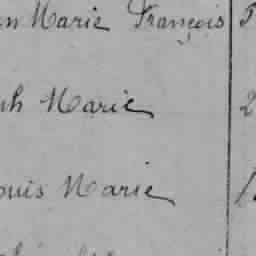 n Marie François 5
ph Marie 2
ouis Marie 1